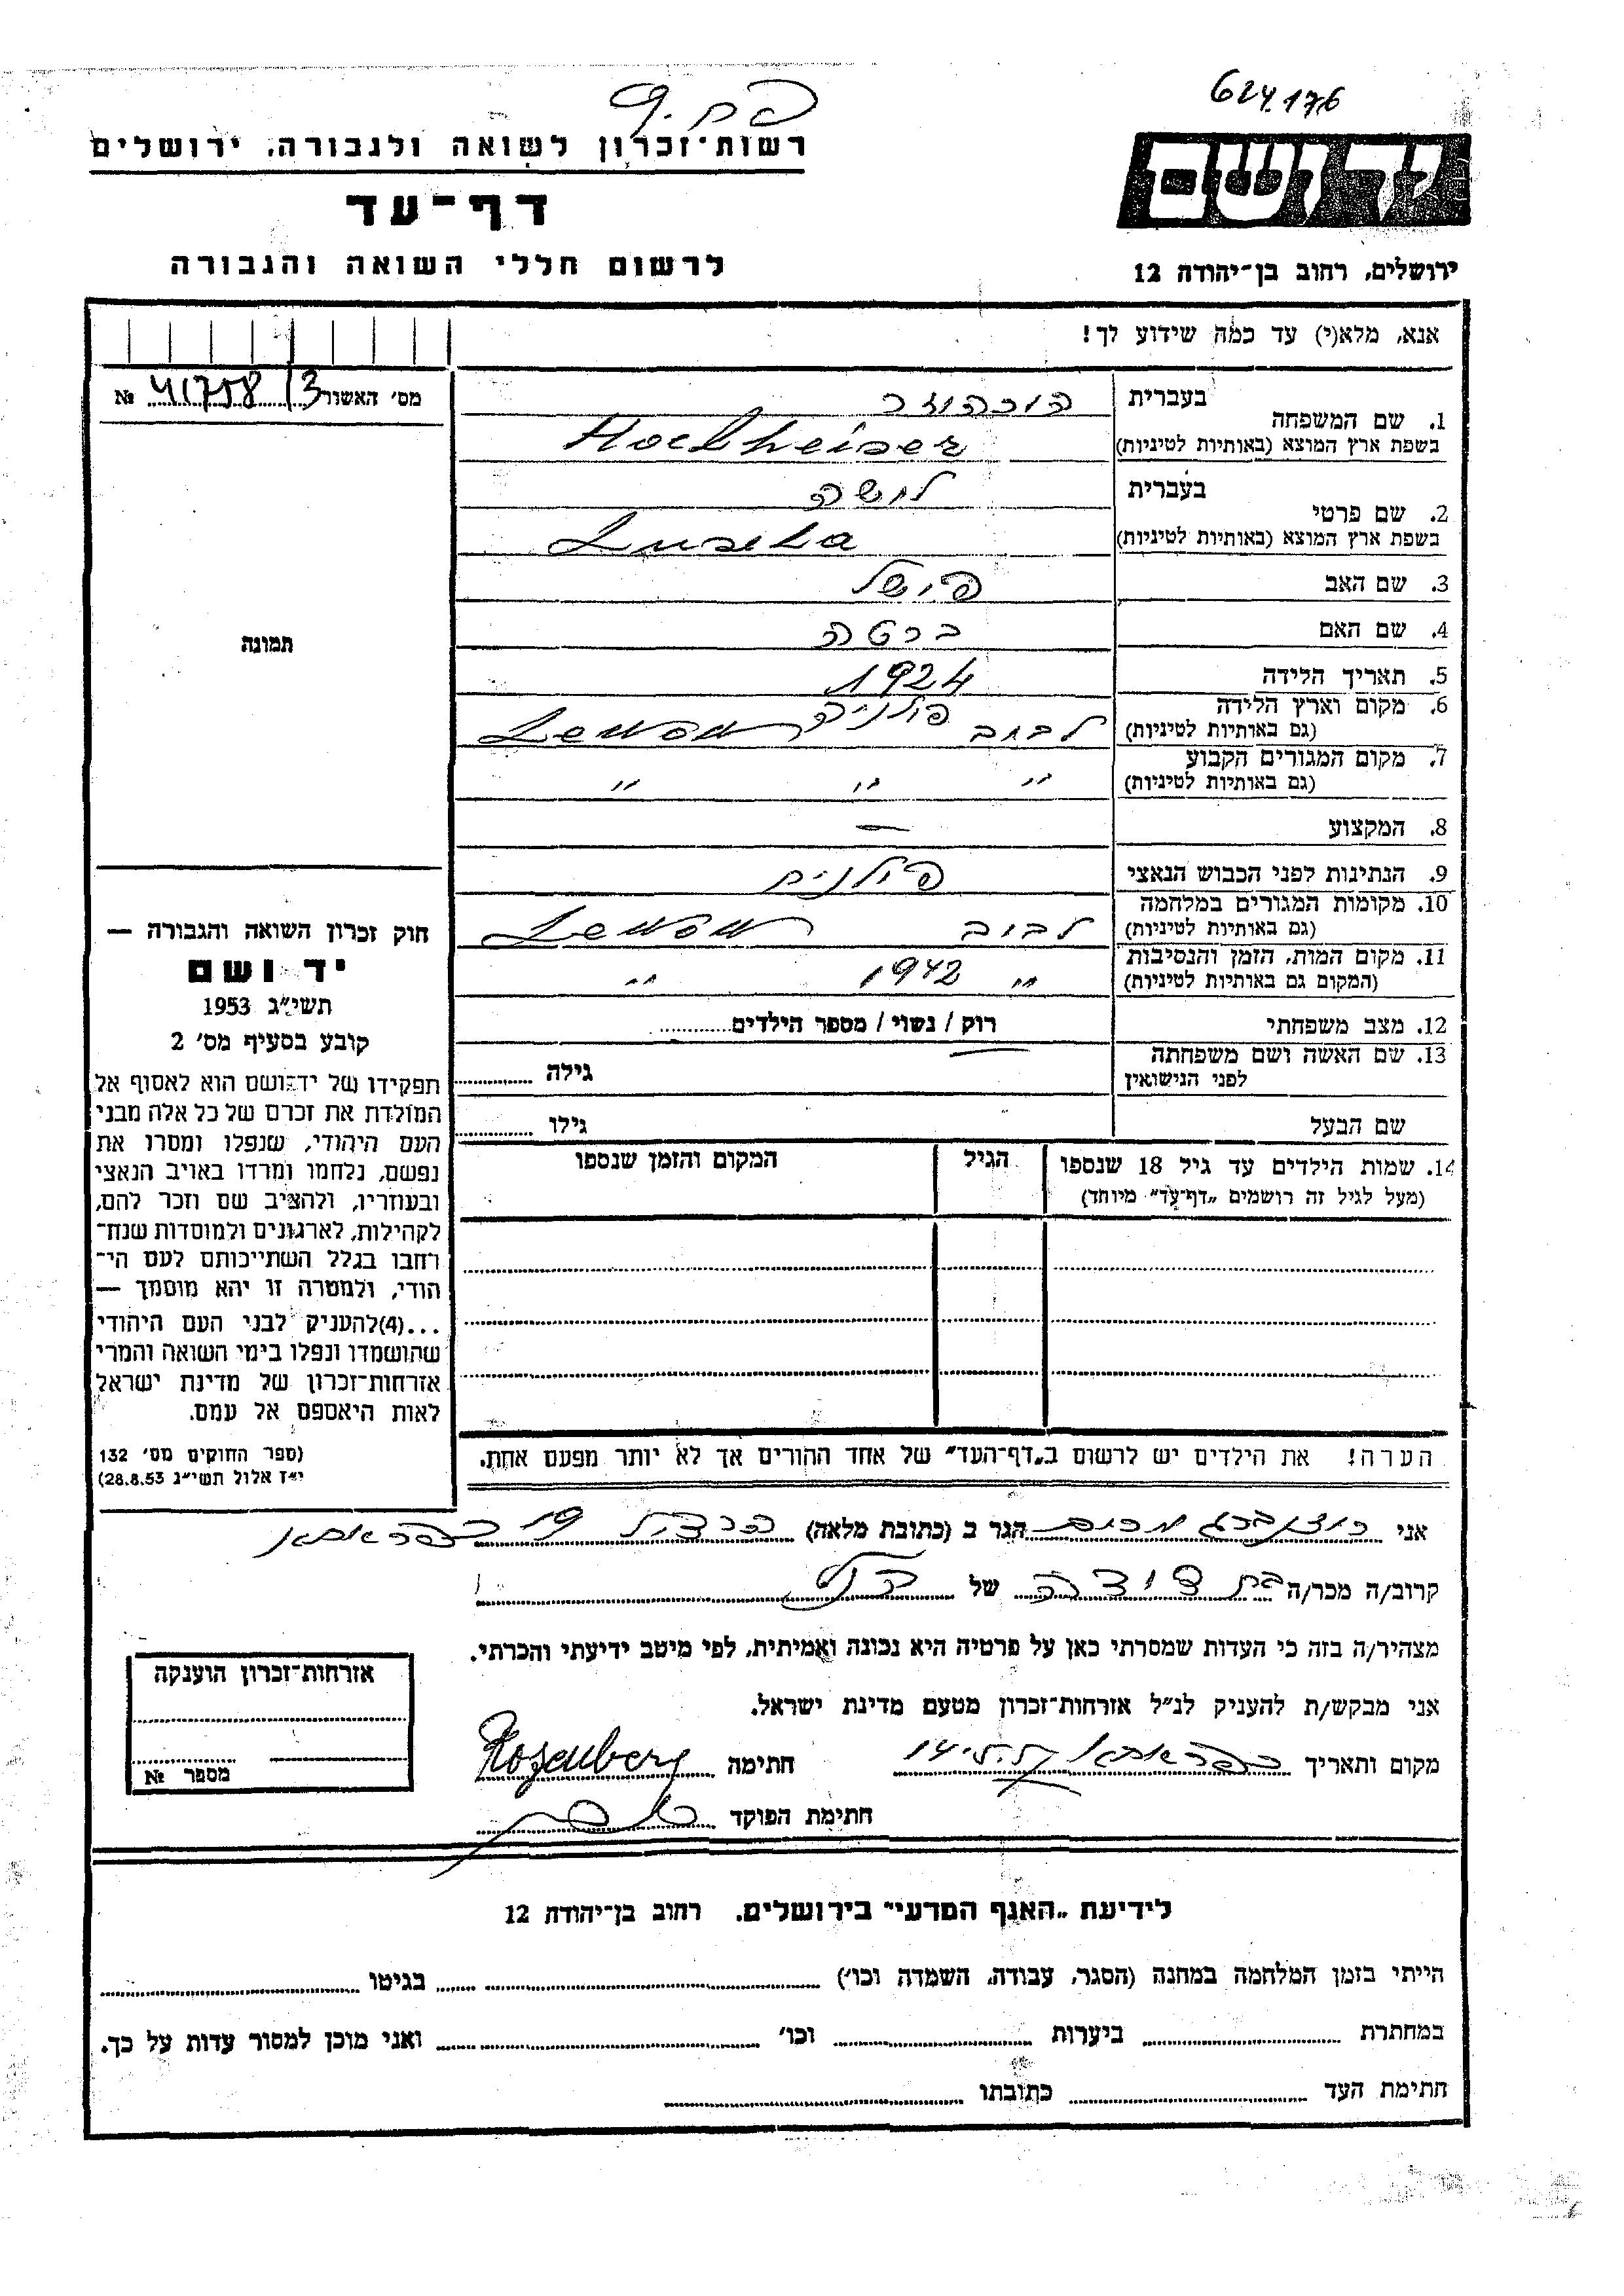 624.176
רשות־זכרון לשואה ולגבורה, ירושלים
ידושם
דף־עד
לרשום חללי השואה והגבורה
ירושלים, רחוב בן־יהודה 12
אנא, מלא(י) עד כמה שידוע לך!
מס׳ האשור 41758/3 №
1. שם המשפחה
בעברית הוכהיזר
בשפת ארץ המוצא (באותיות לטיניות) Hockheiser
2. שם פרטי
בעברית לושה
בשפת ארץ המוצא (באותיות לטיניות) Lusha
3. שם האב פישל
4. שם האם ברטה
5. תאריך הלידה 1924
6. מקום וארץ הלידה
(גם באותיות לטיניות) לבוב פולניה Lewow
7. מקום המגורים הקבוע
(גם באותיות לטיניות) " " "
8. המקצוע —
9. הנתינות לפני הכבוש הנאצי פולנית
10. מקומות המגורים במלחמה
(גם באותיות לטיניות) לבוב Lewow
11. מקום המות, הזמן והנסיבות
(המקום גם באותיות לטיניות) " 1942 "
12. מצב משפחתי רוק / נשוי / מספר הילדים
13. שם האשה ושם משפחתה
לפני הנישואין גילה
שם הבעל גילו
14. שמות הילדים עד גיל 18 שנספו הגיל המקום והזמן שנספו
(מעל לגיל זה רושמים „דף־עד״ מיוחד)
הערה! את הילדים יש לרשום ב„דף־העד״ של אחד ההורים אך לא יותר מפעם אחת.
תמונה
חוק זכרון השואה והגבורה —
יד ושם
תשי״ג 1953
קובע בסעיף מס׳ 2
תפקידו של יד־ושם הוא לאסוף אל
המולדת את זכרם של כל אלה מבני
העם היהודי, שנפלו ומסרו את
נפשם, נלחמו ומרדו באויב הנאצי
ובעוזריו, ולהציב שם וזכר להם,
לקהילות, לארגונים ולמוסדות שנח־
רחבו בגלל השתייכותם לעם הי־
הודי, ולמטרה זו יהא מוסמך —
...(4)להעניק לבני העם היהודי
שהושמדו ונפלו בימי השואה והמרי
אזרחות־זכרון של מדינת ישראל
לאות היאספם אל עמם.
(ספר החוקים מס׳ 132
י״ז אלול תשי״ג 28.8.53)
אני רוזנברג הגר ב (כתובת מלאה) הרצל 19
קרוב/ה מכר/ה בת דודה של
מצהיר/ה בזה כי העדות שמסרתי כאן על פרטיה היא נכונה ואמיתית, לפי מיטב ידיעתי והכרתי.
אני מבקש/ת להעניק לנ״ל אזרחות־זכרון מטעם מדינת ישראל.
מקום ותאריך חתימה Rosenberg
חתימת הפוקד
אזרחות־זכרון הוענקה
מספר №
לידיעת „האגף המדעי״ בירושלים, רחוב בן־יהודה 12
הייתי בזמן המלחמה במחנה (הסגר, עבודה, השמדה וכו׳) בגיטו
במחתרת ביערות וכו׳ ואני מוכן למסור עדות על כך.
חתימת העד כתובתו